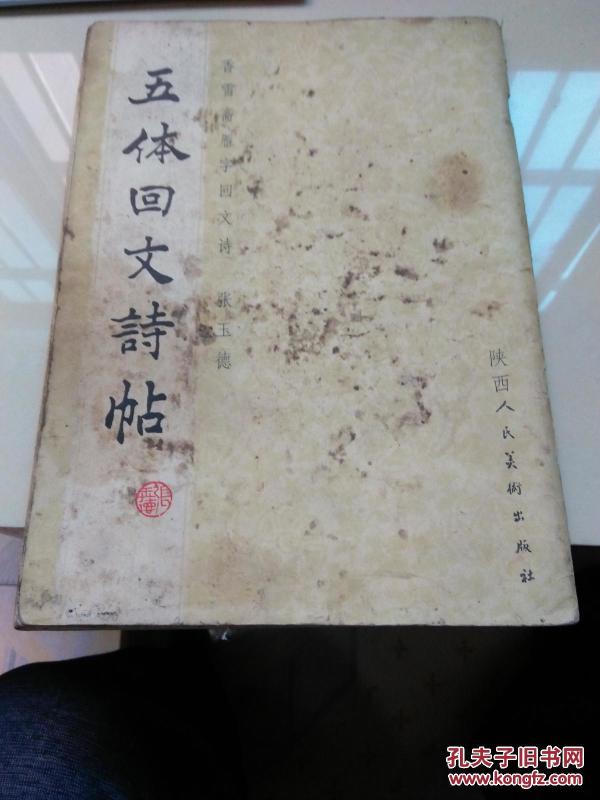 五体回文詩帖
香雪斋雁字回文诗 张玉德
陕西人民美術出版社
孔夫子旧书网
www.kongfz.com